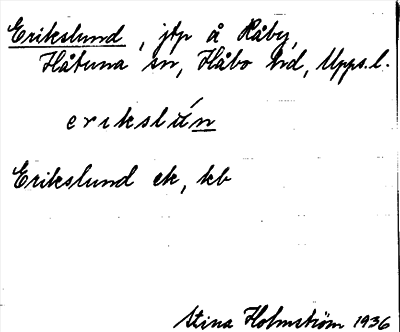 Erikslund, jtp å Råby,
Håtuna sn, Håbo hd, Upps.l.
erikslún
Erikslund ek, kb
Stina Holmström 1936